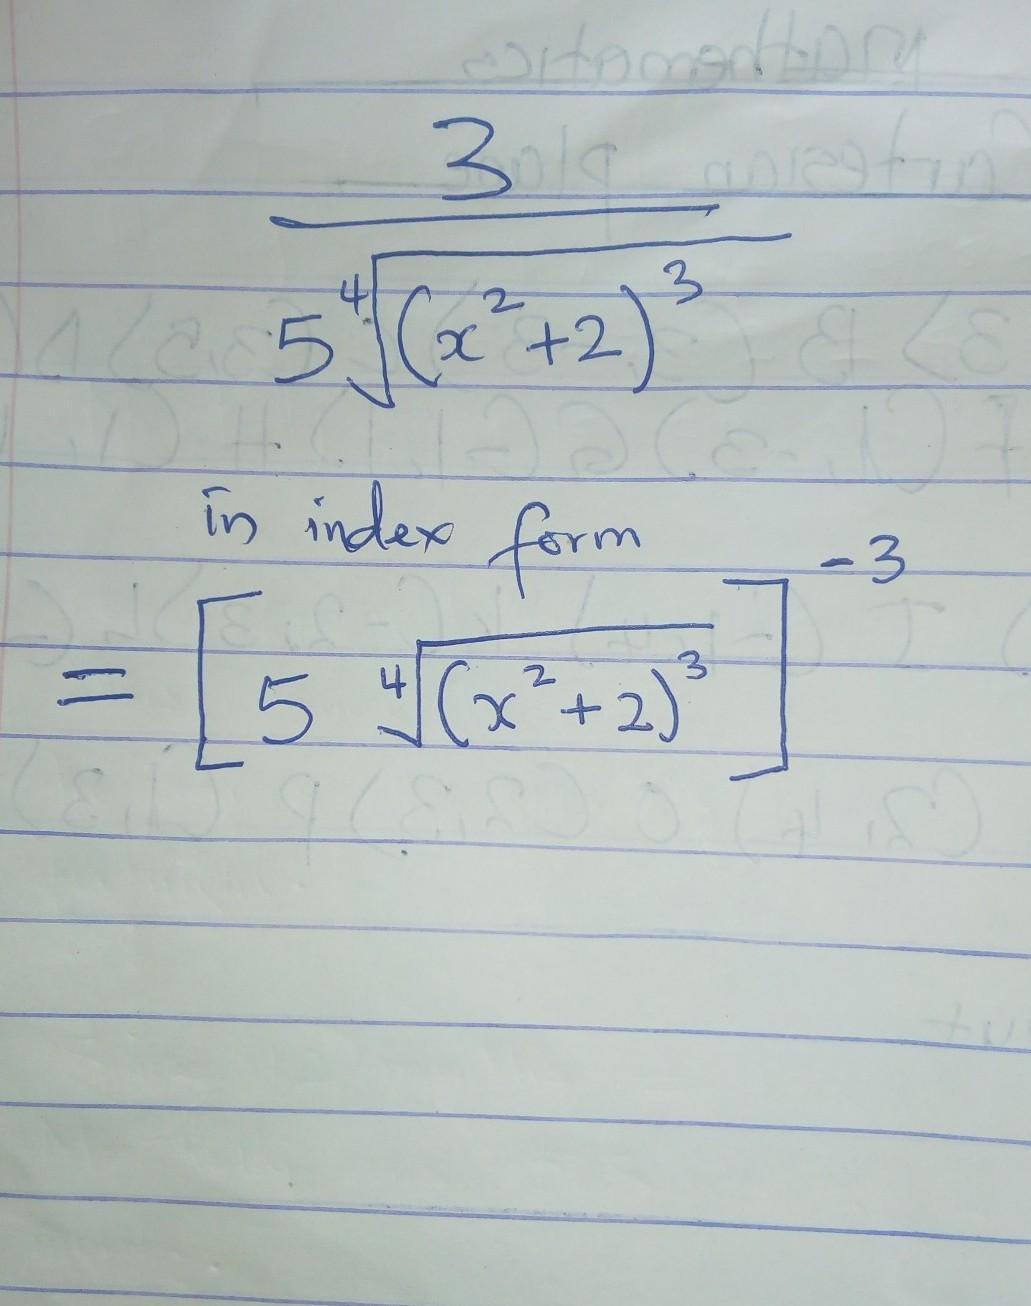 3
5 ∜(x² + 2)³
in index form
= [5 ∜(x² + 2)³]⁻³